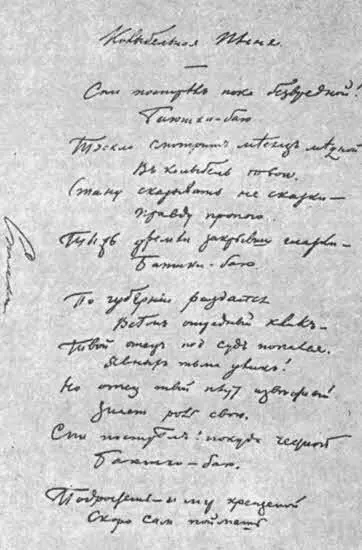 Колыбельная Пѣсня.
Спи пострѣлъ пока безвредной!
Баюшки-баю.
Тускло смотритъ мѣсяцъ мѣдной
Въ колыбель твою.
Стану сказывать не сказки—
Правду пропою.
Ты жъ дремли закрывши глазки—
Баюшки-баю.
По губерніи раздался
Всѣмъ отрадный кликъ—
Твой отецъ подъ судъ попался.
Явныхъ тьма уликъ!
Но отецъ твой плутъ извѣстный
Знаетъ роль свою.
Спи пострѣлъ! покуда честной
Баюшки-баю.
Подростешь—и міръ крещеной
Скоро самъ поймешь